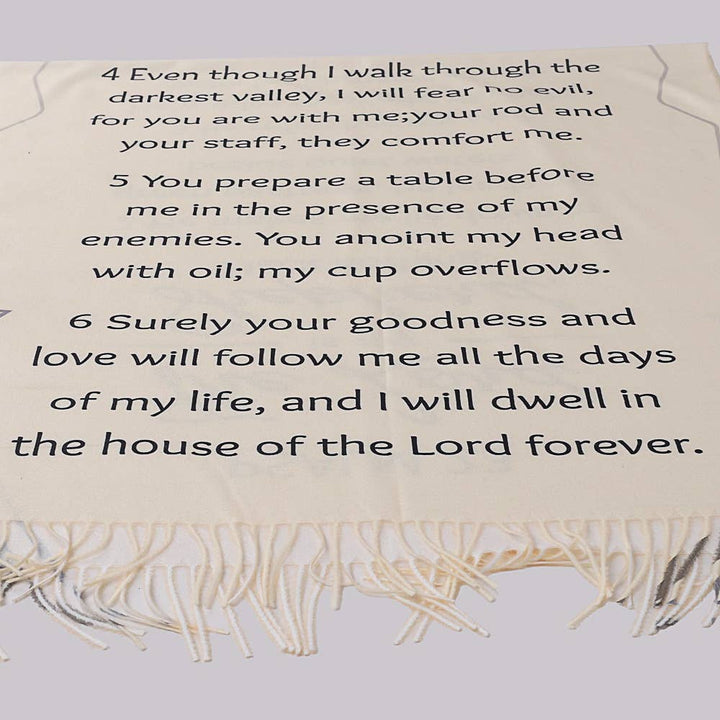 4 Even though I walk through the
darkest valley, I will fear no evil,
for you are with me;your rod and
your staff, they comfort me.
5 You prepare a table before
me in the presence of my
enemies. You anoint my head
with oil; my cup overflows.
6 Surely your goodness and
love will follow me all the days
of my life, and I will dwell in
the house of the Lord forever.